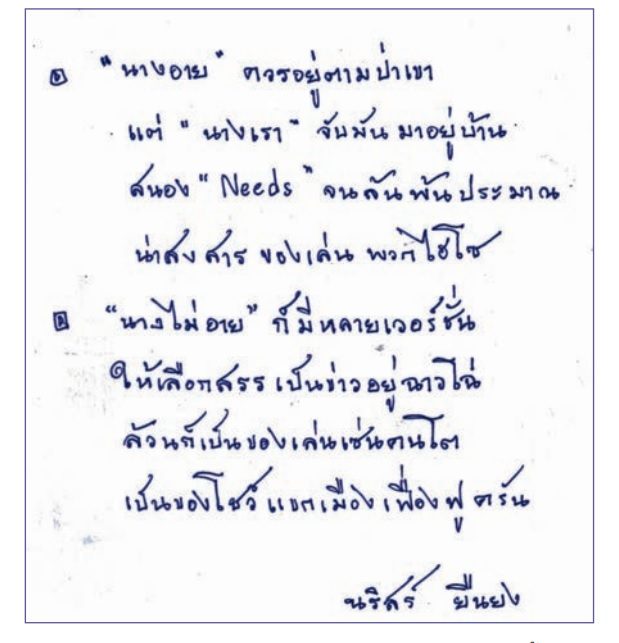 ๑ "นางอาย" ควรอยู่ตามป่าเขา
แต่ "นางเรา" จับมันมาอยู่บ้าน
สนอง "Needs" จนล้นพ้นประมาณ
น่าสงสาร ของเล่น พวกไฮโซ
๒ "นางไม่อาย" ก็มีหลายเวอร์ชั่น
ให้เลือกสรร เป็นข่าวอยู่ฉาวโฉ่
ล้วนก็เป็นของเล่นเช่นคนโต
เป็นของโชว์ แขกเมือง เฟื่องฟู ครัน
นริสร์ ยืนยง